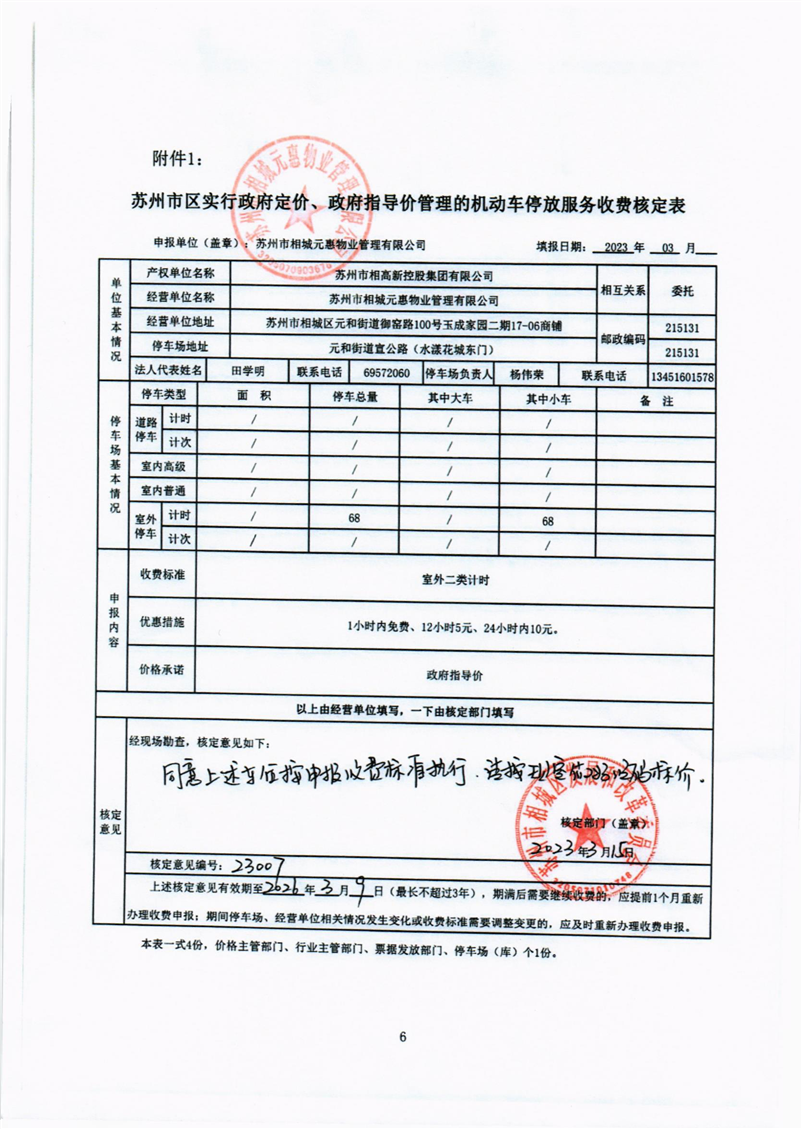 附件1：
苏州市区实行政府定价、政府指导价管理的机动车停放服务收费核定表
申报单位（盖章）：苏州市相城元惠物业管理有限公司 填报日期： 2023 年 03 月
单位基本情况
产权单位名称 苏州市相高新控股集团有限公司 相互关系 委托
经营单位名称 苏州市相城元惠物业管理有限公司
经营单位地址 苏州市相城区元和街道御窑路100号玉成家园二期17-06商铺 邮政编码 215131
停车场地址 元和街道宣公路（水漾花城东门） 215131
法人代表姓名 田学明 联系电话 69572060 停车场负责人 杨伟荣 联系电话 13451601578
停车场基本情况
停车类型 面 积 停车总量 其中大车 其中小车 备 注
道路停车 计时 / / / /
计次 / / / /
室内高级 / / / /
室内普通 / / / /
室外停车 计时 / 68 / 68
计次 / / / /
申报内容
收费标准 室外二类计时
优惠措施 1小时内免费、12小时5元、24小时内10元。
价格承诺 政府指导价
以上由经营单位填写，一下由核定部门填写
核定意见
经现场勘查，核定意见如下：
同意上述车位按申报收费标准执行，请按规定
标价。
核定部门（盖章）
2023年3月15日
核定意见编号：23007
上述核定意见有效期至2026年3月9日（最长不超过3年），期满后需要继续收费的，应提前1个月重新
办理收费申报；期间停车场、经营单位相关情况发生变化或收费标准需要调整变更的，应及时重新办理收费申报。
本表一式4份，价格主管部门、行业主管部门、票据发放部门、停车场（库）个1份。
6